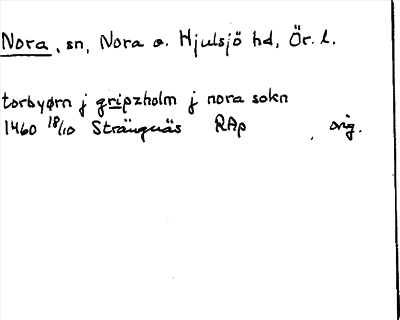 Nora, sn, Nora o. Hjulsjö hd, Ör. l.
torbyørn j gripzholm j nora sokn
1460 18/10 Strängnäs RAp, orig.